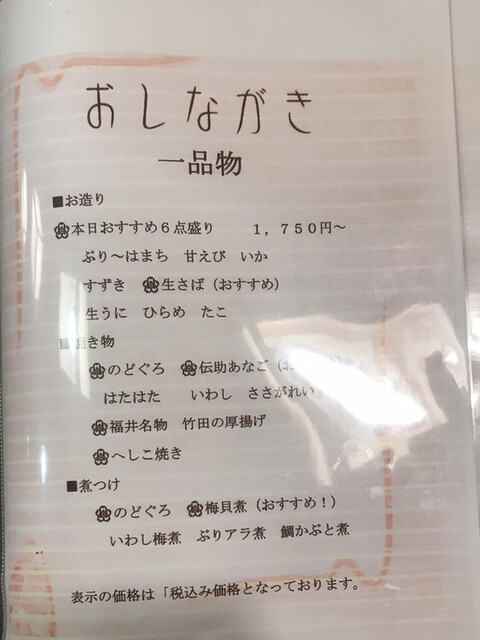 おしながき
一品物
■お造り
本日おすすめ6点盛り 1,750円～
ぶり～はまち 甘えび いか
すずき 生さば(おすすめ)
生うに ひらめ たこ
■ き物
のどぐろ 伝助あなご(お
はたはた いわし ささがれい
福井名物 竹田の厚揚げ
へしこ焼き
■煮つけ
のどぐろ 梅貝煮(おすすめ!)
いわし梅煮 ぶりアラ煮 鯛かぶと煮
表示の価格は「税込み価格となっております。